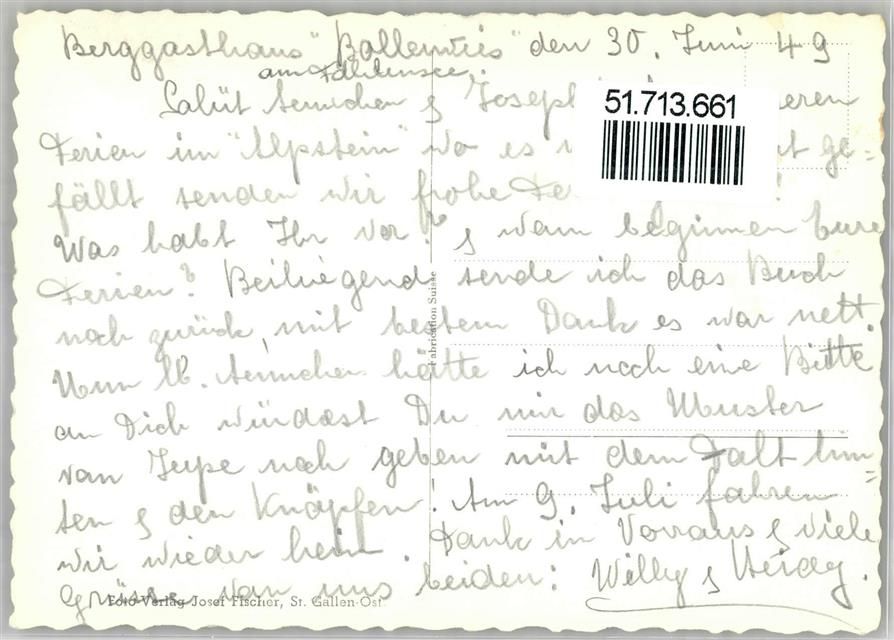 Berggasthaus "Bollenwies" den 30. Juni 49
am Fählensee.
Salüt Annchen & Joseph
51.713.661
eren
Ferien im "Alpstein" wo es ge=
fällt senden wir frohe
Was habt Ihr vor? & wann beginnen Eure
Ferien? Beiliegend sende ich das Buch
noch zurück, mit bestem Dank es war nett.
Nun lb. Annchen hätte ich noch eine Bitte
an Dich würdest Du mir das Muster
van Jupe noch geben mit dem Falt hin=
ten & den Knöpfen! Am 9. Juli fahren
wir wieder heim. Dank in Vorraus & viele
Grüsse van uns beiden: Willy & Heidy.
Foto-Verlag Josef Fischer, St. Gallen-Ost
Fabrication Suisse